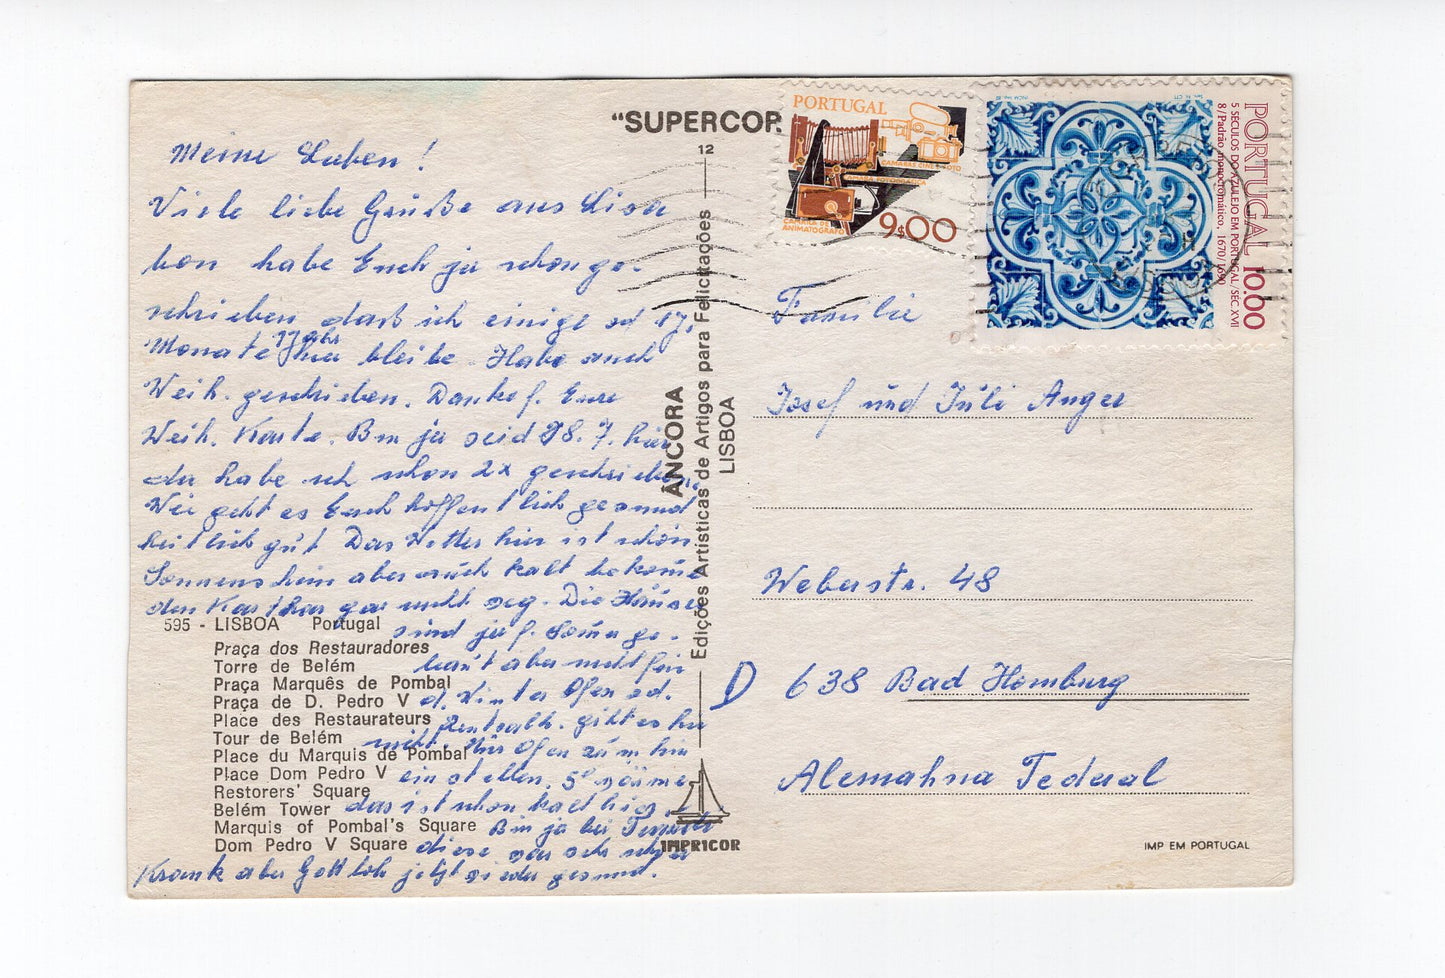 Meine Lieben!
Viele liebe Grüße aus Lissa
bon habe Euch ja schon ge-
schrieben, daß ich einige od 17,
Monate hier bleibe. Habe auch
1 Jahr
Weih. geschrieben. Danke f. Eure
Weih. Karte. Bin ja seid 28.7. hier
da habe ich schon 2x geschrieben.
Wie geht es Euch hoffentlich gesund
heitlich gut. Das Wetter hier ist schön
Sonnenschein aber auch kalt bekomme
den gar nicht weg. Die Häuser
sind ja f. Somer ge-
baut aber nicht für
d. Winter Ofen od.
Zentralh. gibt es hier
nicht. Nur Ofen zum hin
einstellen. 5 Räume
das ist schon kalt hier.
Bin ja bei
diese war sehr schwer
Krank aber Gott lob jetzt wieder gesund.
595 - LISBOA Portugal
Praça dos Restauradores
Torre de Belém
Praça Marquês de Pombal
Praça de D. Pedro V
Place des Restaurateurs
Tour de Belém
Place du Marquis de Pombal
Place Dom Pedro V
Restorers' Square
Belém Tower
Marquis of Pombal's Square
Dom Pedro V Square
"SUPERCOR
12
ÂNCORA
Edições Artísticas de Artigos para Felicitações
LISBOA
IMPRICOR
PORTUGAL
CAMARAS CINE E FOTO
CAMARA FOTOGRAFICA
CAMARA DE
ANIMATOGRAFO
9$00
PORTUGAL 10.00
5 SÉCULOS DO AZULEJO EM PORTUGAL/SEC.XVII
8/Padrão monocromático, 1670/1690
Familie
Josef und Juli Anger
Weberstr. 48
D 638 Bad Homburg
Alemahna Federal
IMP EM PORTUGAL